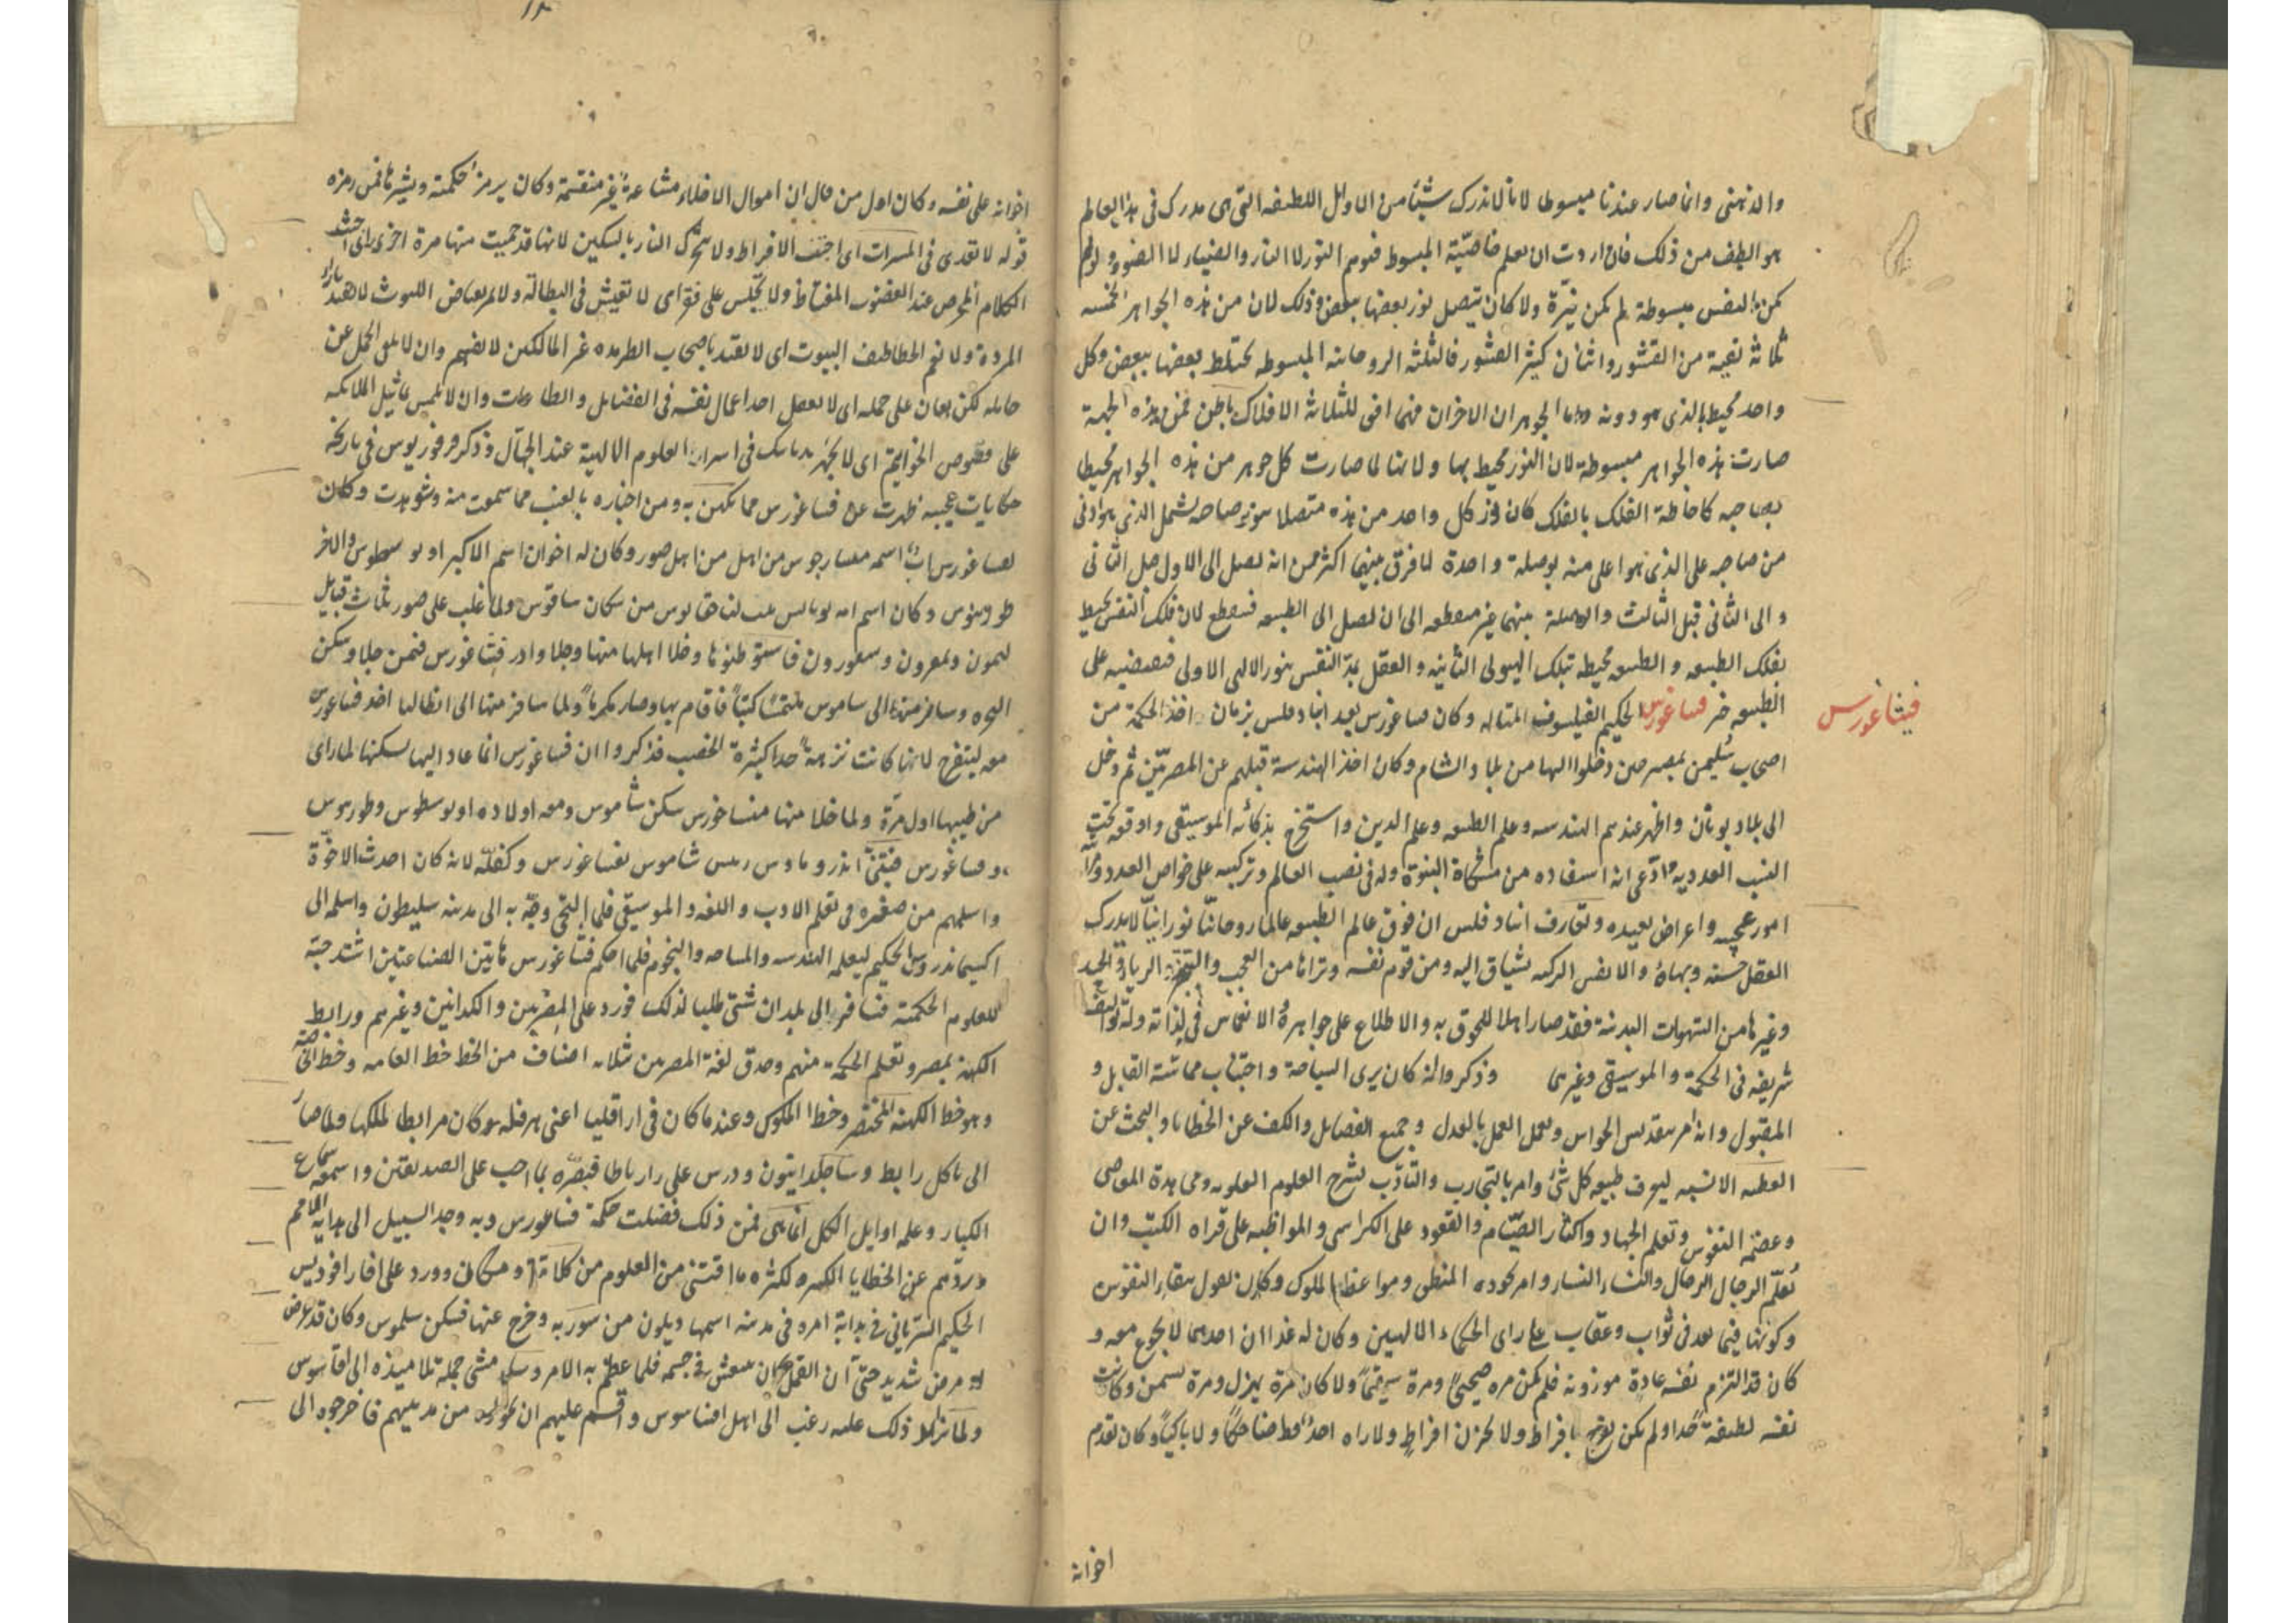 والذهنى وانما صار عندنا مبسوطا لانا لا ندرك شيئا من الاوايل اللطيفه التى هى مدرك فى هذا العالم
هو الطف من ذلك فان اردت ان تعلم خاصيّة المبسوط فتوهم النور لا النار والضياء لا المضىء ولو لم
تكن النفس مبسوطة لم تكن نيّرة ولا كان يتصل نور بعضها ببعض وذلك لان من هذه الجواهر الخمسه
ثلاثة نقية من القشور واثنان كثير القشور فالثلثه الروحانيه المبسوطه تختلط بعضها ببعض وكل
واحد محيط بالذى هو دونه واما الجوهران الاخران فهما افق للثلاثة الافلاك باطن فمن هذه الجهة
صارت هذه الجواهر مبسوطة لان النور محيط بها ولانها لما صارت كل جوهر من هذه الجواهر محيطا
بصاحبه كاحاطة الفلك بالفلك كان نور كل واحد من هذه متصلا بنور صاحبه يشمل الذى هو ادنى
من صاحبه على الذى هو اعلى منه بوصلة واحدة لا فرق بينهما اكثر من انه يصل الى الاول قبل الثانى
والى الثانى قبل الثالث والوصلة بينهما غير منقطعه الى ان يصل الى الطبيعه فينقطع لان فلك النفس محيط
بفلك الطبيعه والطبيعه محيطه بتلك الهيولى الثانيه والعقل يمدّ النفس بنور الالهى الاولى فيفيضه على
الطبيعه خبر فيثاغورس الحكيم الفيلسوف المتاله وكان فيثاغورس بعد انبادقلس بزمان اخذ الحكمة من
فيثاغورس
اصحاب سليمن بمصر حين دخلوا اليها من بلاد الشام وكان اخذ الهندسة قبلهم عن المصريّين ثم دخل
الى بلاد يونان واظهر عندهم الهندسه وعلم الطبيعه وعلم الدين واستخرج بذكائه الموسيقى واوقعه تحت
النسب العدديه وادّعى انه استفاده من مشكاة النبوّة وله فى نصب العالم وتركيبه على خواص العدد ومراتبه
امور عجيبه واغراض بعيده وتقارف انبادقلس ان فوق عالم الطبيعه عالما روحانيّا نورانيّا لا يدرك
العقل حسنه وبهاؤه والانفس الزكيه تشتاق اليه ومن قوم نفسه وتراها من العجب والتجبّر والرياء والحسد
وغيرها من الشهوات البدنية فقد صار اهلا للحوق به والاطلاع على جواهره والانغماس فى لذاته وله تواليف
شريفه فى الحكمة والموسيقى وغيرهما وذكروا انه كان يرى السياحة واجتناب مماسّة القابل و
المقبول وانه امر بتقديس الحواس وتعلم العمل بالعدل وجميع الفضايل والكف عن الخطايا والبحث عن
العطيه الانسيه ليعرف طبيعه كل شئ وامر بالتجارب والتادّب بشرح العلوم العلويه ومجاهدة المعاصى
وعصمة النفوس وتعلم الجهاد واكثار الصيّام والقعود على الكراسى والمواظبه على قراه الكتب وان
تعلّم الرجال الرجال والنساء النساء وامر بجوده المنطق ومواعظ الملوك وكان يقول ببقاء النفوس
وكونها فيما بعد فى ثواب وعقاب على راى الحكماء الالهيين وكان له غذاان احدهما لا يجوع معه و
كان قد التزم نفسه عادة موزونه فلم يكن مره صحيحا ومرة سقيما ولا كان مرة يهزل ومرة يسمن وكانت
نفسه لطيفة جدا ولم يكن يفرح بافراط ولا يحزن افراط ولا راه احد قط ضاحكا ولا باكيا وكان تقدم
اخوانه
١٢
اخوانه على نفسه وكان اول من قال ان اموال الاخلاء مشاعة غير منقسمة وكان يرمز حكمته ويشيرها فمن رمزه
قوله لا تعدى فى المسرات اى اجتنب الافراط ولا تحرّك النار بالسكين لانها قد حميت منها مرة اخرى اى احتشد
الكلام المحرص عند الغضوب المغتاظ ولا تجلس على قفز اى لا تعيش فى البطالة ولا تمر بغياض الليوث لا تقتد براى
المردة ولا تقم الخطاطيف البيوت اى لا تقتد باصحاب الطرمذه غير المالكين لالسنتهم وان لا يلقى الحمل عن
حامله لكن يعان على حمله اى لا يغفل احد اعمال نفسه فى الفضايل والطاعات وان لا تلبس تماثيل الملايكه
على فصوص الخواتيم اى لا تجهر بديانتك فى اسرار العلوم الالهية عند الجهّال وذكر فرفوريوس فى تاريخه
حكايات عجيبه ظهرت عن فيثاغورس مما تكهن به ومن اخباره بالغيب مما سمعت منه وشوهدت وكان
لفيثاغورس اب اسمه منسارخوس من اهل صور وكان له اخوان اسم الاكبر اونوسطوس والاخر
طورينوس وكان اسم امه بوثايس من سكان ساموس ولما غلب على صور ثلاث قبايل
ليمون ويمرون وسقورون فاستوطنوها وخلا اهلها منها وجلا والد فيثاغورس فيمن جلا وسكن
البحره وسافر منها الى ساموس ملتمسا كسبا فاقام بها وصار مكرما ولما سافر منها الى انطاليا اخذ فيثاغورس
معه ليتفرج لانها كانت نزهة جدا كثيرة الخصب فذكروا ان فيثاغورس انما عاد اليها يسكنها لما راى
من طيبها اول مرّة ولما خلا منها منساخورس سكن ساموس ومعه اولاده اونوسطوس وطورنوس
وفيثاغورس فتبنّى اندروماوس رئيس ساموس بفيثاغورس وكفله لانه كان احدث الاخوة
واسلمهم من صغره فى تعلم الادب واللغه والموسيقى فلما التحى وجّه به الى مدينه مليطون واسلمه الى
اكسيماندروس الحكيم ليعلمه الهندسه والمساحه والنجوم فلما احكم فيثاغورس هاتين الصناعتين اشتد حبّه
للعلوم الحكمية فسافر الى بلدان شتى طلبا لذلك فورد على المصريين والكلدانين وغيرهم ورابط
الكهنه بمصر وتعلم الحكمة منهم وحذق لغة المصريين بثلاثه اصناف من الخط خط العامه وخط الخاصّه
وهو خط الكهنه المختصر وخط الملوك وعندما كان فى اراقليا اعنى هرقله وكان مرابطا لملكها ولما صار
الى بابل رابط وساجلدانيون ودرس على راراباطا فبصّره بما احب على الصديقين واسمعه سماع
الكيان وعلمه اوايل الكل انما هى فمن ذلك فضلت حكمة فيثاغورس وبه وجد السبيل الى هداية الامم
وردّهم عن الخطايا الكثيره لكثره ما اقتنى من العلوم من كل امة ومكان وورد على افاراقوديس
الحكيم السريانى فى بداية امره فى مدينه اسمها ديلون من سوريه وخرج عنها فسكن ساموس وكان قد عرض
له مرض شديد حتى ان القمل كان ينتعش فى جسمه فلما عظم به الامر وساء مشى حمله تلاميذه الى افاسوس
ولما تزايد ذلك عليه رغب الى اهل افاسوس واقسم عليهم ان يحولوه من مدينتهم فاخرجوه الى